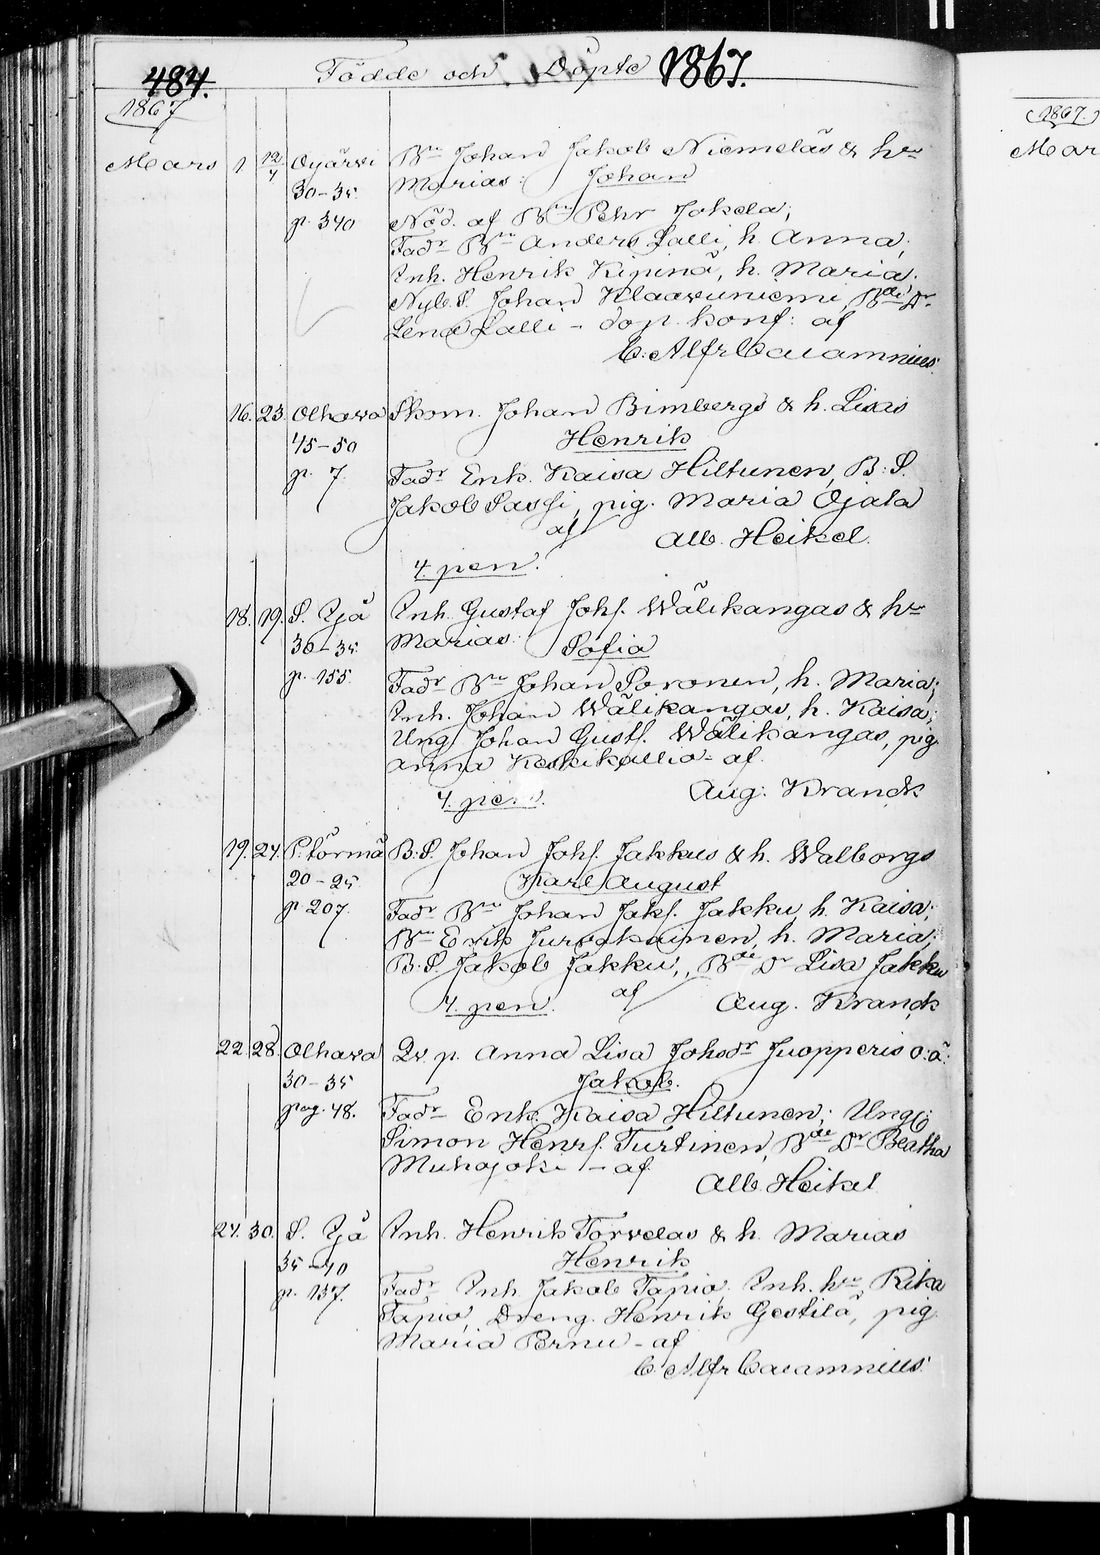 484. Födde och Döpte 1867.
1867 1867.
Mars 1 12/4 Oijärvi Bn Johan Jakob Niemeläs & hn Mar
30-35 Marias: Johan
p. 340 Nöd. af Bn Pehr Jokela;
Fadr Bn Anders Lalli, h. Anna,
Inh. Henrik Kipinä, h. Maria.
Nyb. S. Johan Klaavuniemi Bde Dr
Lena Lalli - dop. konf: af
C. Alfr Cajamnius.
16. 23. Olhava Skom. Johan Bimbergs & h. Lisas
45-50 Henrik
p. 7. Fadr Enk. Kaisa Hiltunen, B: S.
Jakob Sassi, pig. Maria Ojala
af Alb. Heikel.
4. pen.
18. 19. S. Ijå Inh. Gustaf Johs. Wälikangas & hn
30-35 Marias: Sofia
p. 155. Fadr Bn Johan Soronen, h. Maria;
Inh. Johan Wälikangas, h. Kaisa;
Ung. Johan Gusts. Wälikangas, pig.
Anna Keskikallio - af.
4. pen. Aug. Kranck
19. 24. P. törmä B. S. Johan Johs. Jakkus & h. Walborgs
20-25 Karl August
p. 207. Fadr Bn Johan Jaks. Jakku, h. Kaisa;
Bn Erik Jurvakainen, h. Maria;
B. S. Jakob Jakku, Bde Dr Lisa Jakku
4. pen. af Aug. Kranck
22. 28. Olhava Qv. p. Anna Lisa Johsdr Juopperis o. ä.
30-35 Jakob.
pag. 48. Fadr Enk. Kaisa Hiltunen; Ungk.
Simon Henrs. Turtinen, Bde Dr Beatha
Muhojoki - af
Alb. Heikel
24. 30. S. Ijå Inh. Henrik Torvelas & h. Marias
35-40 Henrik
p. 137. Fadr Inh. Jakob Tapio. Inh. hn Rika
Tapio, Dreng. Henrik Gestilä, pig.
Maria Pernu - af
C. Alfr Cajamnius.